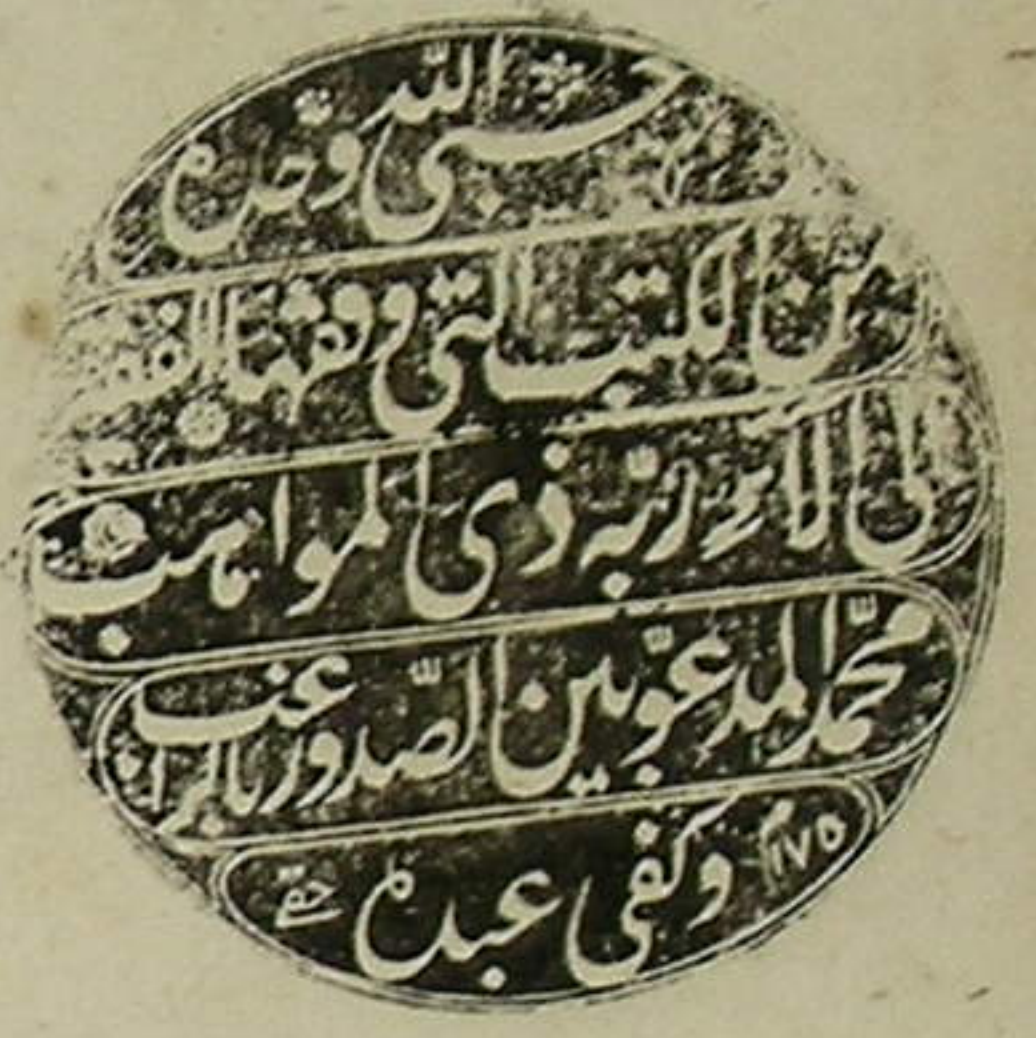 حسبى الله وحده
من الكتب التى وقفها الفقير ا
لى آلاء ربه ذى المواهب
محمد المدعو بين الصّدور بالراغب
١١٧٥ وكفى عبده حقي